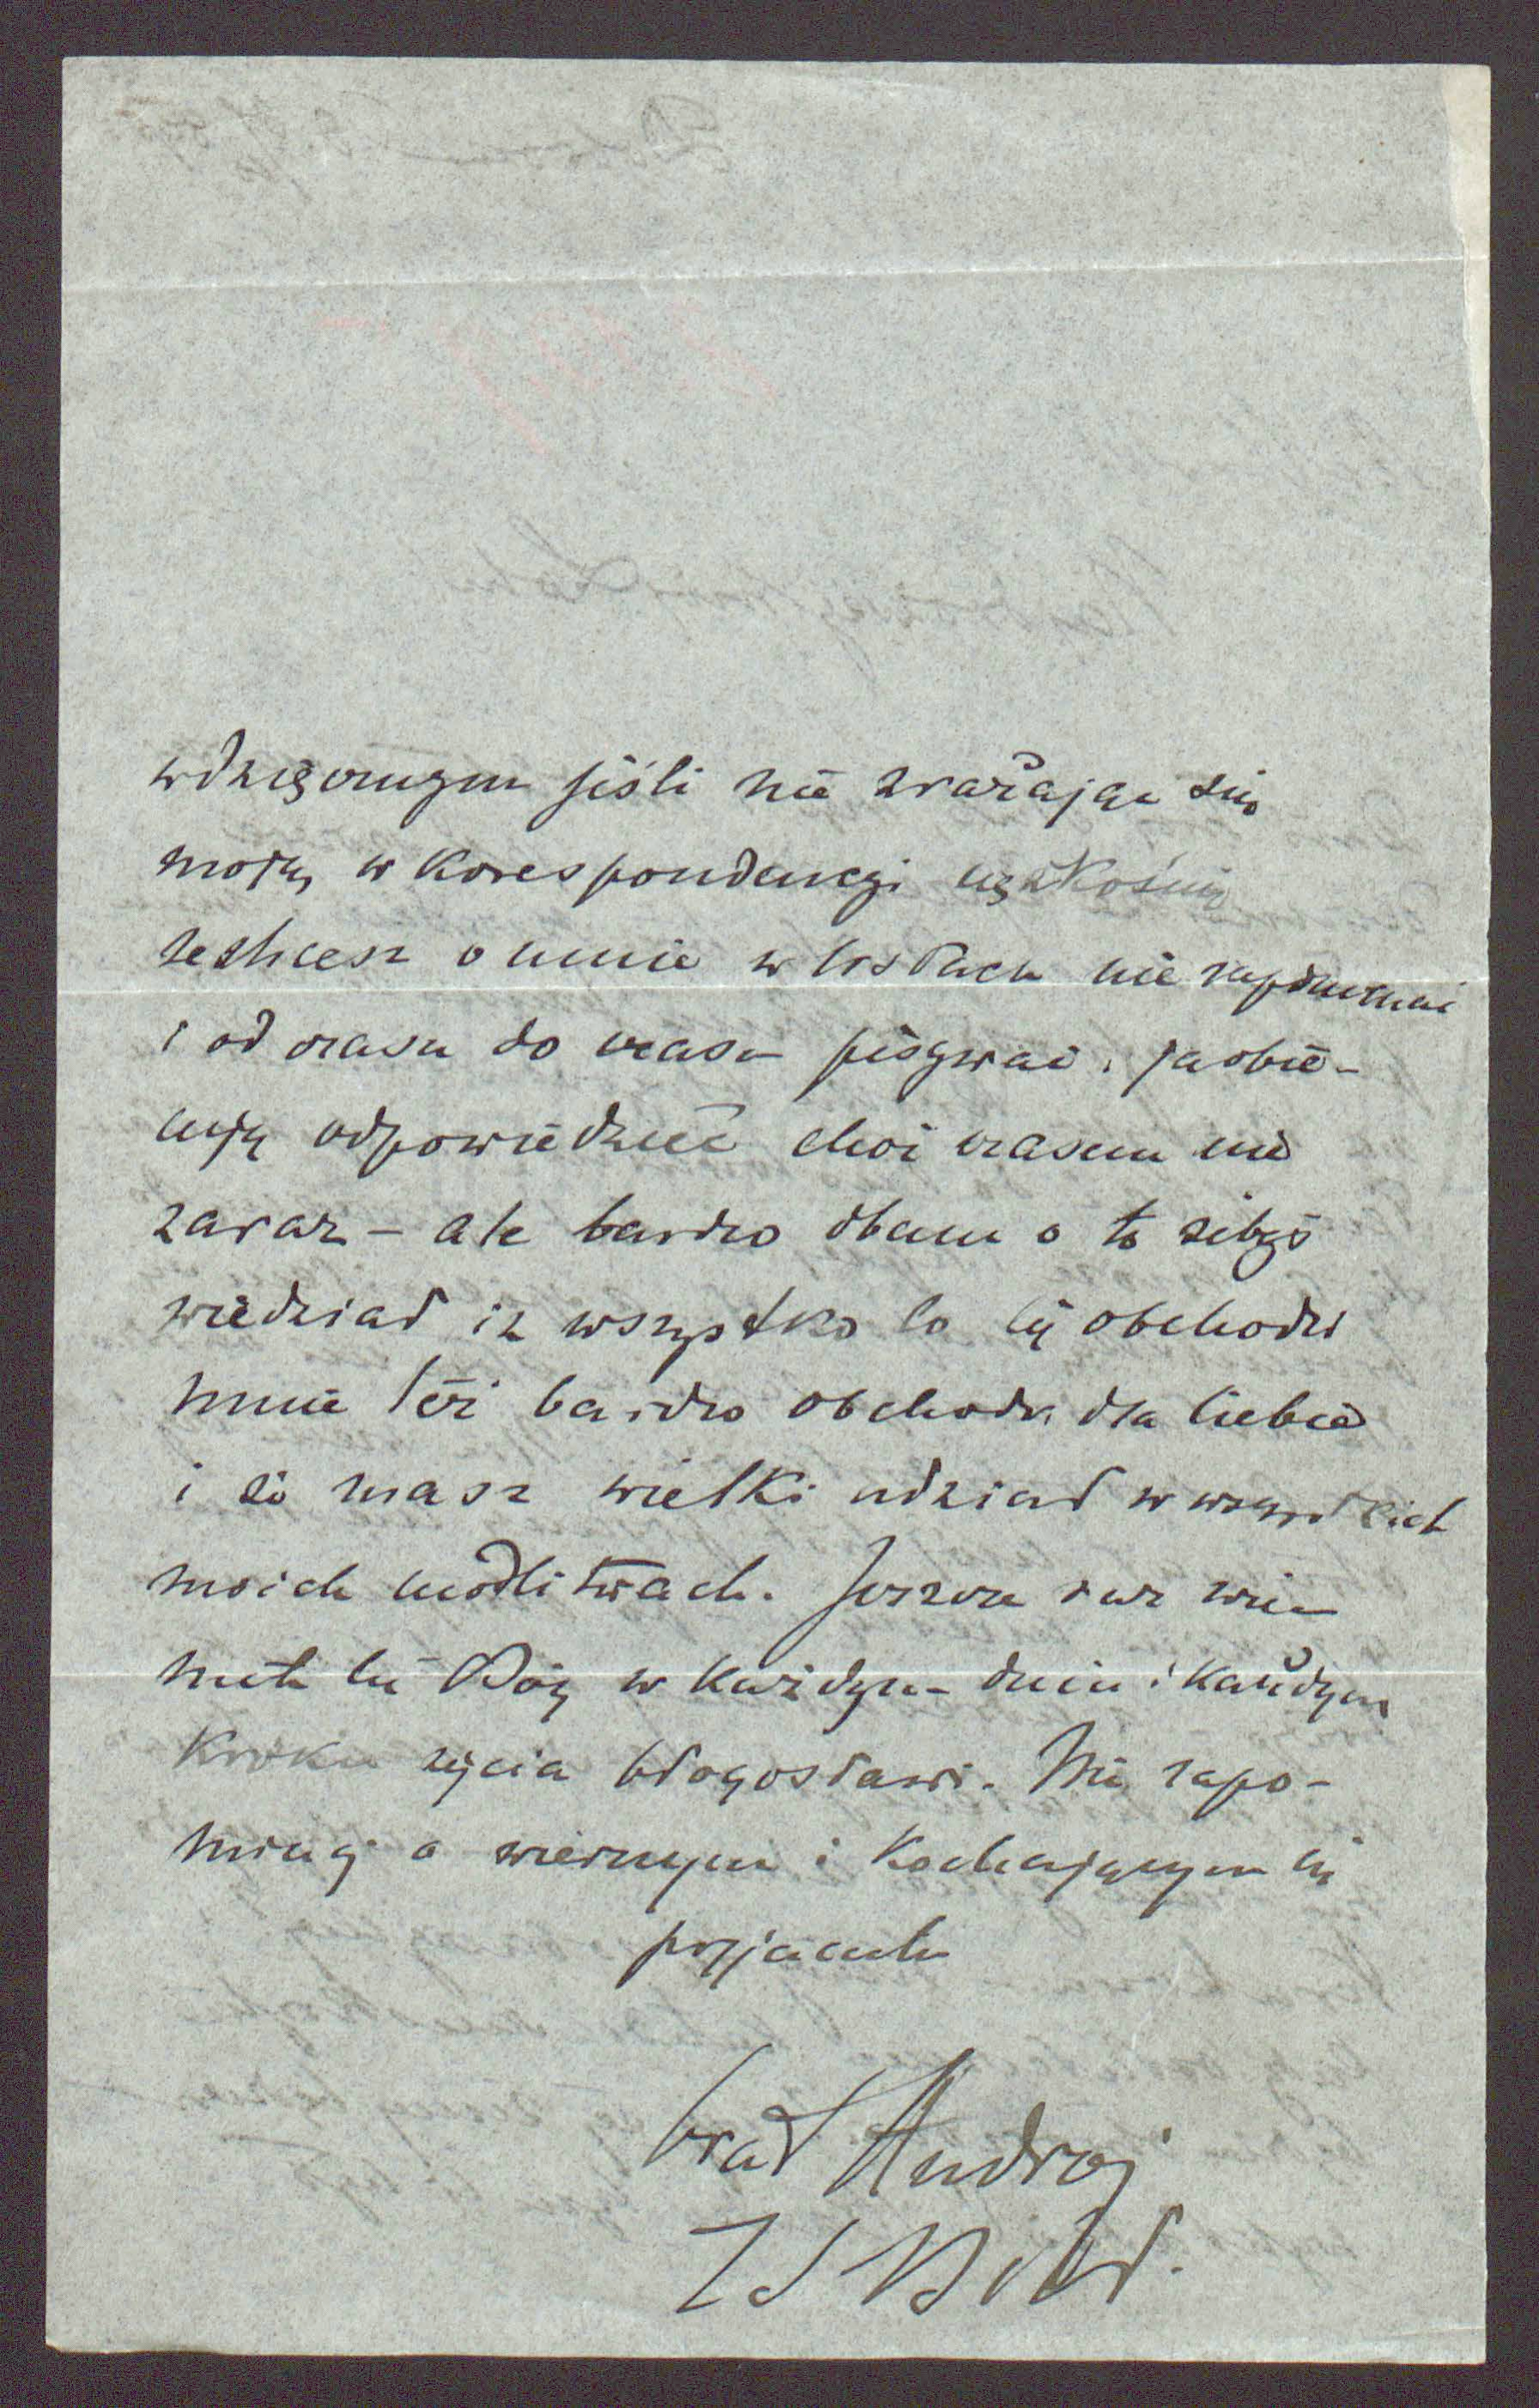 wdzięcznym jeśli nie zrażając się
moją w korespondencyi
zechcesz o mnie w listach nie zapominać
i od czasu do czasu pisywać. ja obie-
cuję odpowiedzieć choć czasem nie
zaraz – ale bardzo dbam o to żebyś
wiedział iż wszystko co Cię obchodzi
mnie też bardzo obchodzi dla Ciebie
i że masz wielki udział w wszystkich
moich modlitwach. Jeszcze raz więc
niech Cię Bóg w każdym dniu i każdym
kroku życia błogosławi. Nie zapo-
minaj o wiernym i kochającym Cię
przyjacielu
brat Andrzej